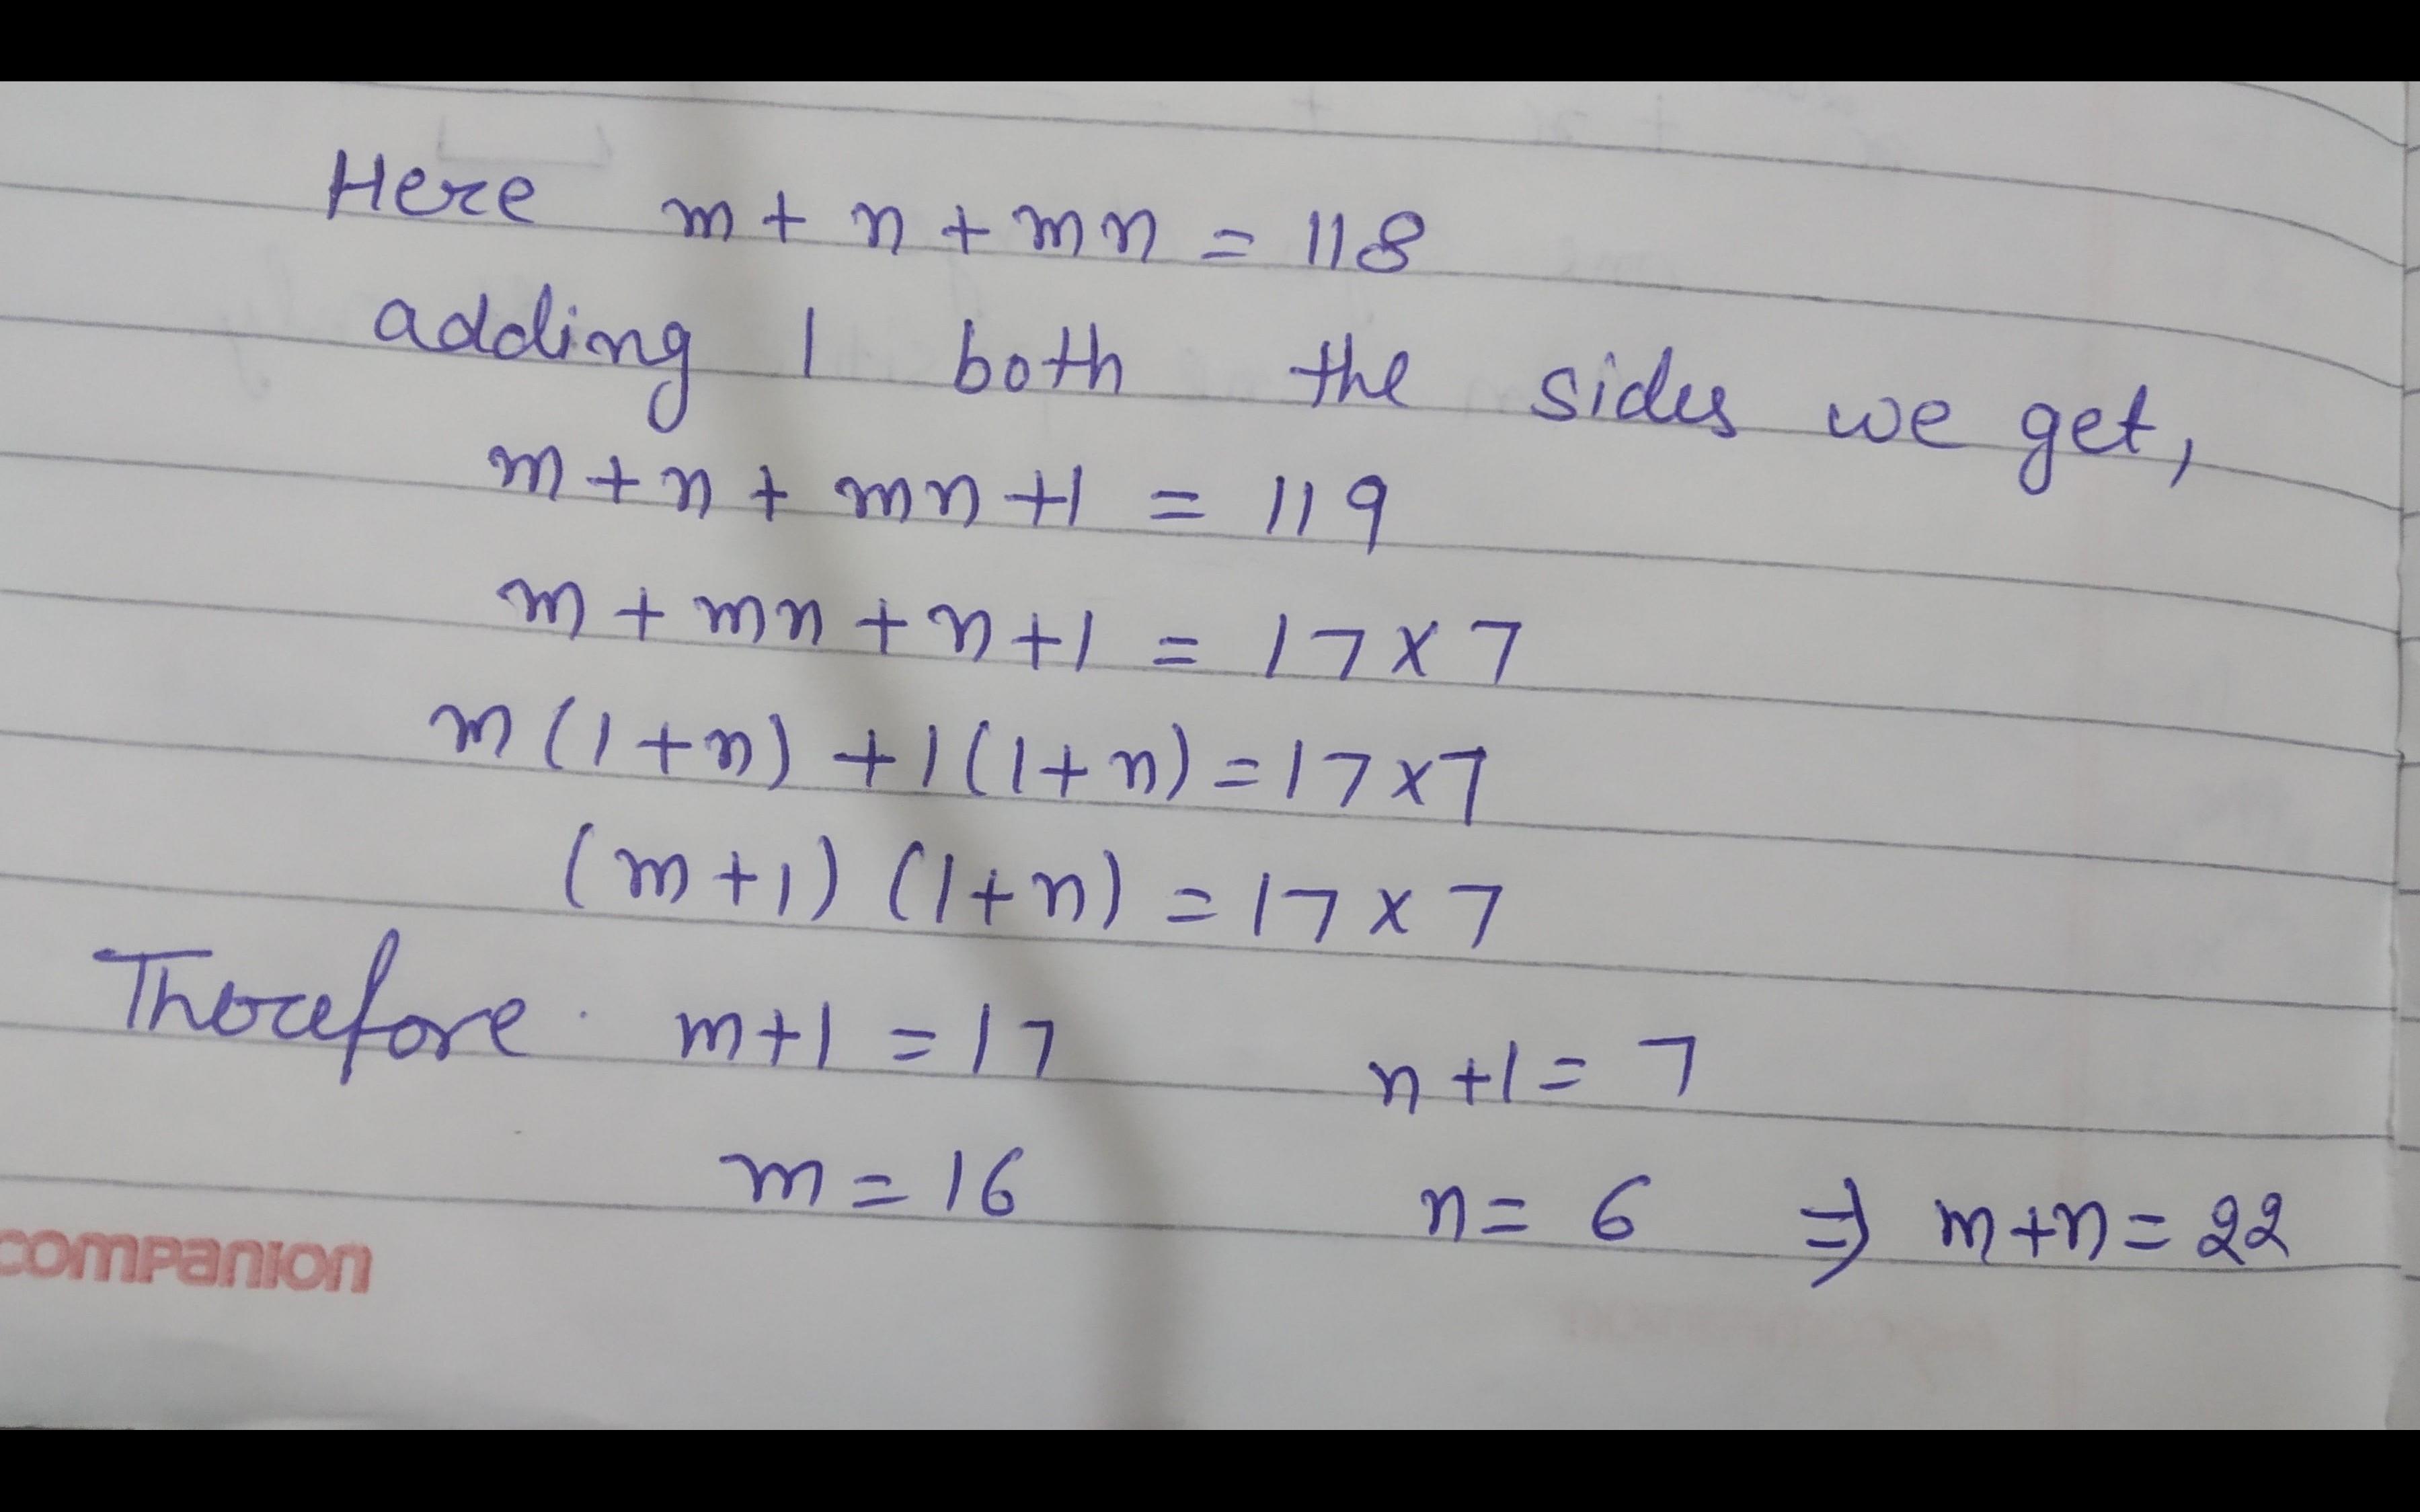 Here m + n + mn = 118
adding 1 both the sides we get,
m + n + mn +1 = 119
m + mn + n +1 = 17 x 7
m (1 + n) + 1 (1 + n) = 17 x 7
(m +1) (1 + n) = 17 x 7
Therefore m+1 = 17 n +1 = 7
m = 16 n = 6 ⇒ m+n = 22
companion